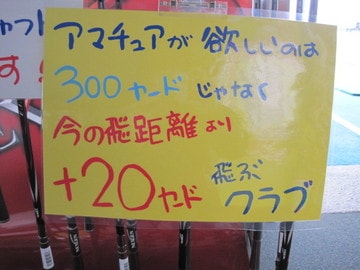 アマチュアが欲しいのは
300ヤードじゃなく
今の飛距離より
+20ヤード飛ぶ
クラブ
ャフト
す